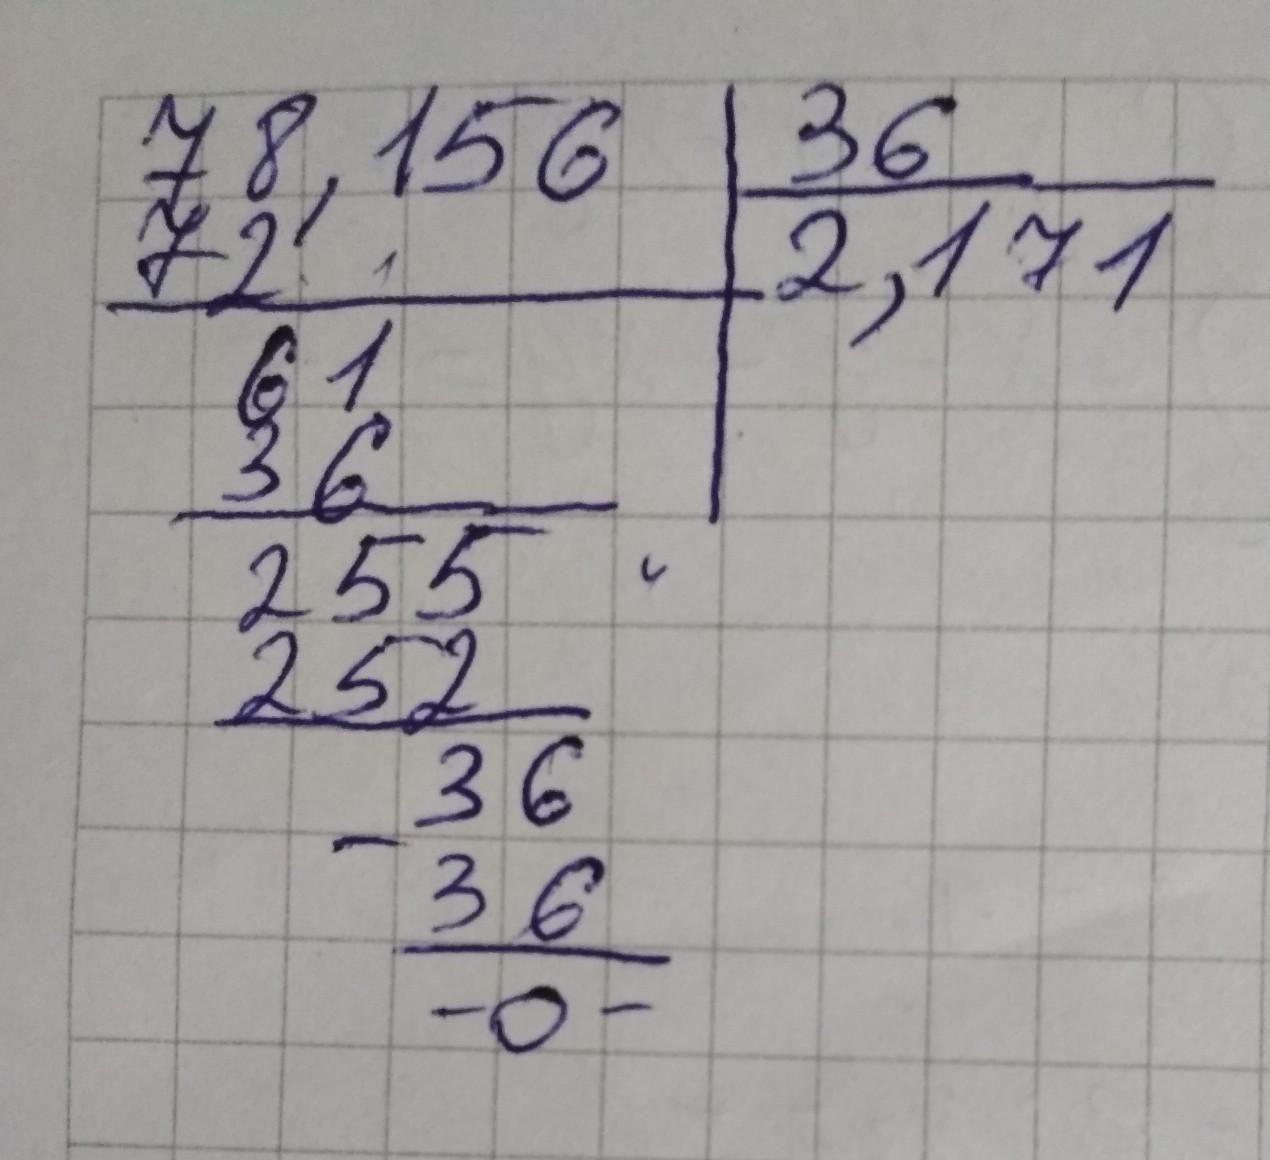 78,156 36
72 2,171
61
36
255
252
36
- 36
-0-